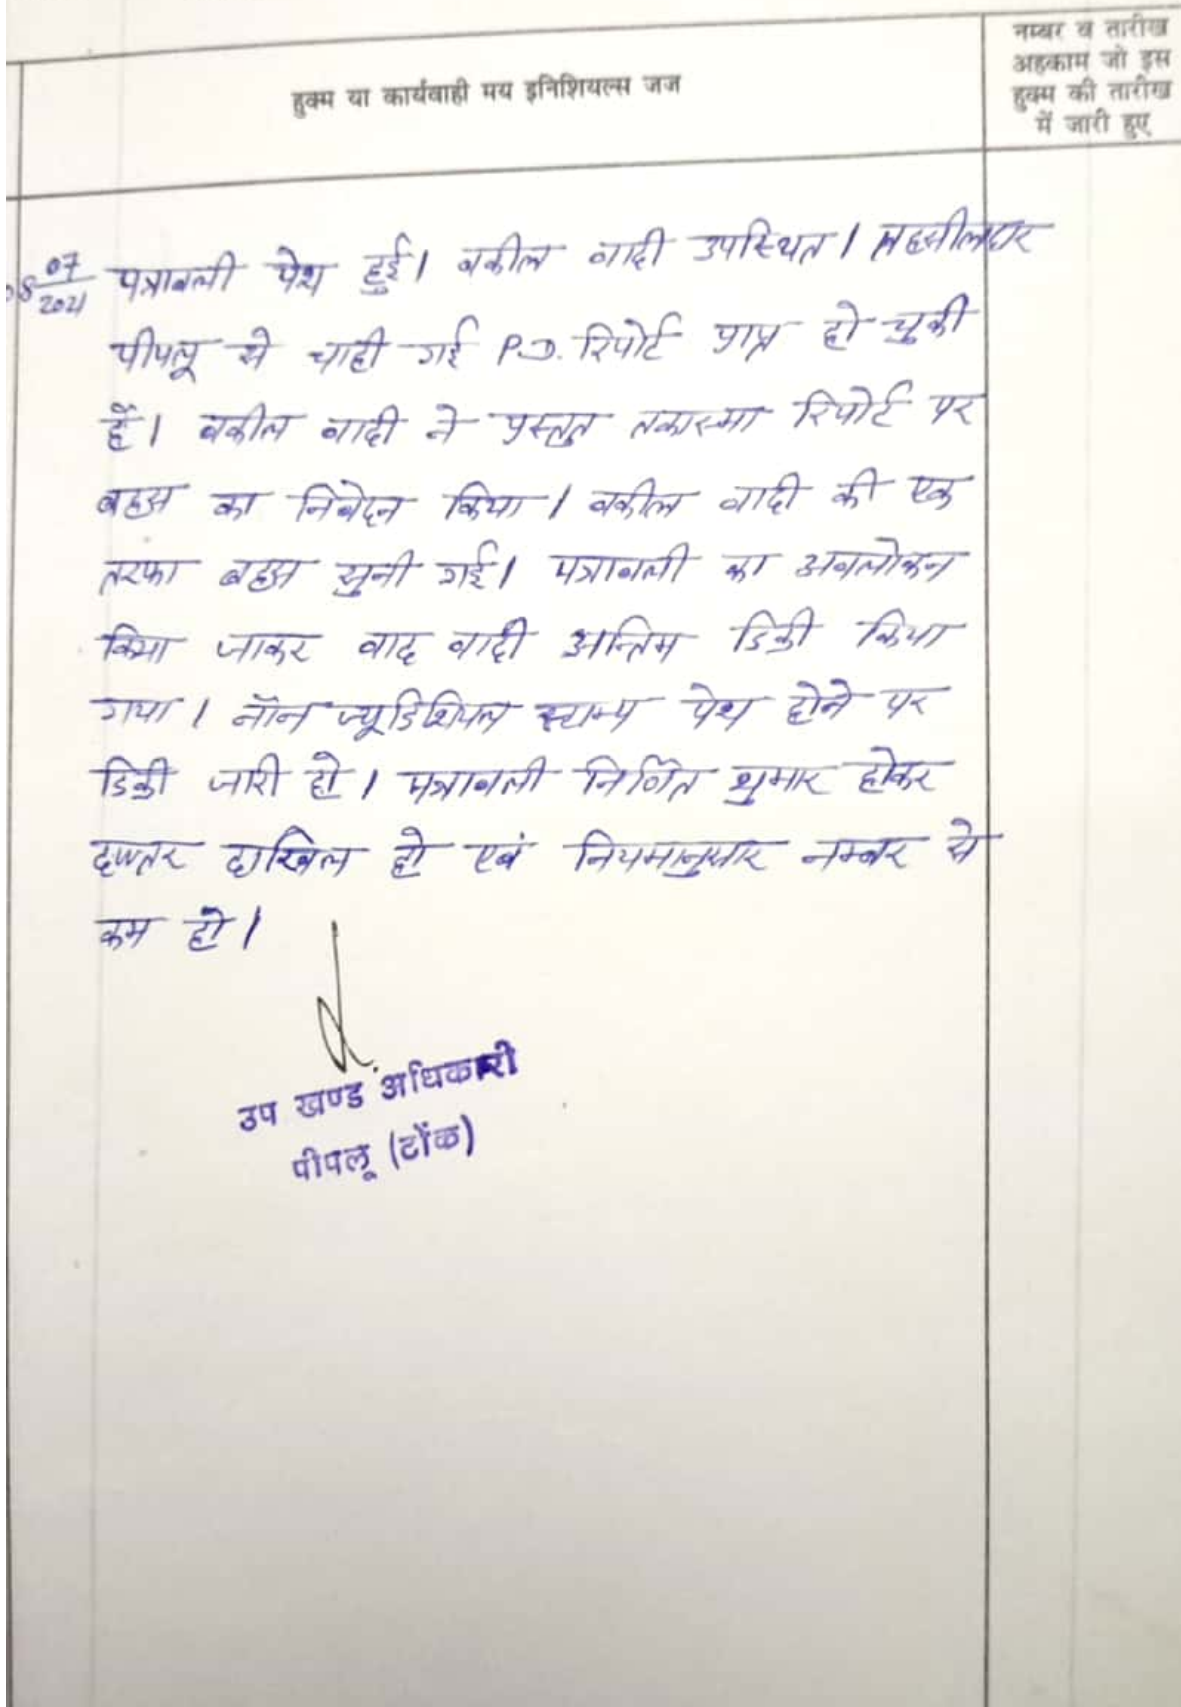 हुक्म या कार्यवाही मय इनिशियल्स जज
नम्बर व तारीख
अहकाम जो इस
हुक्म की तारीख
में जारी हुए
08/07/2021 पत्रावली पेश हुई। वकील वादी उपस्थित। तहसीलदार
पीपलू से चाही गई P.D. रिपोर्ट प्राप्त हो चुकी
हैं। वकील वादी ने प्रस्तुत तकास्मा रिपोर्ट पर
बहस का निवेदन किया। वकील वादी की एक
तरफा बहस सुनी गई। पत्रावली का अवलोकन
किया जाकर वाद वादी अन्तिम डिक्री किया
गया। नॉन ज्यूडिशियल स्टाम्प पेश होने पर
डिक्री जारी हो। पत्रावली निर्णित शुमार होकर
दफ्तर दाखिल हो एवं नियमानुसार नम्बर से
कम हो।
उप खण्ड अधिकारी
पीपलू (टोंक)